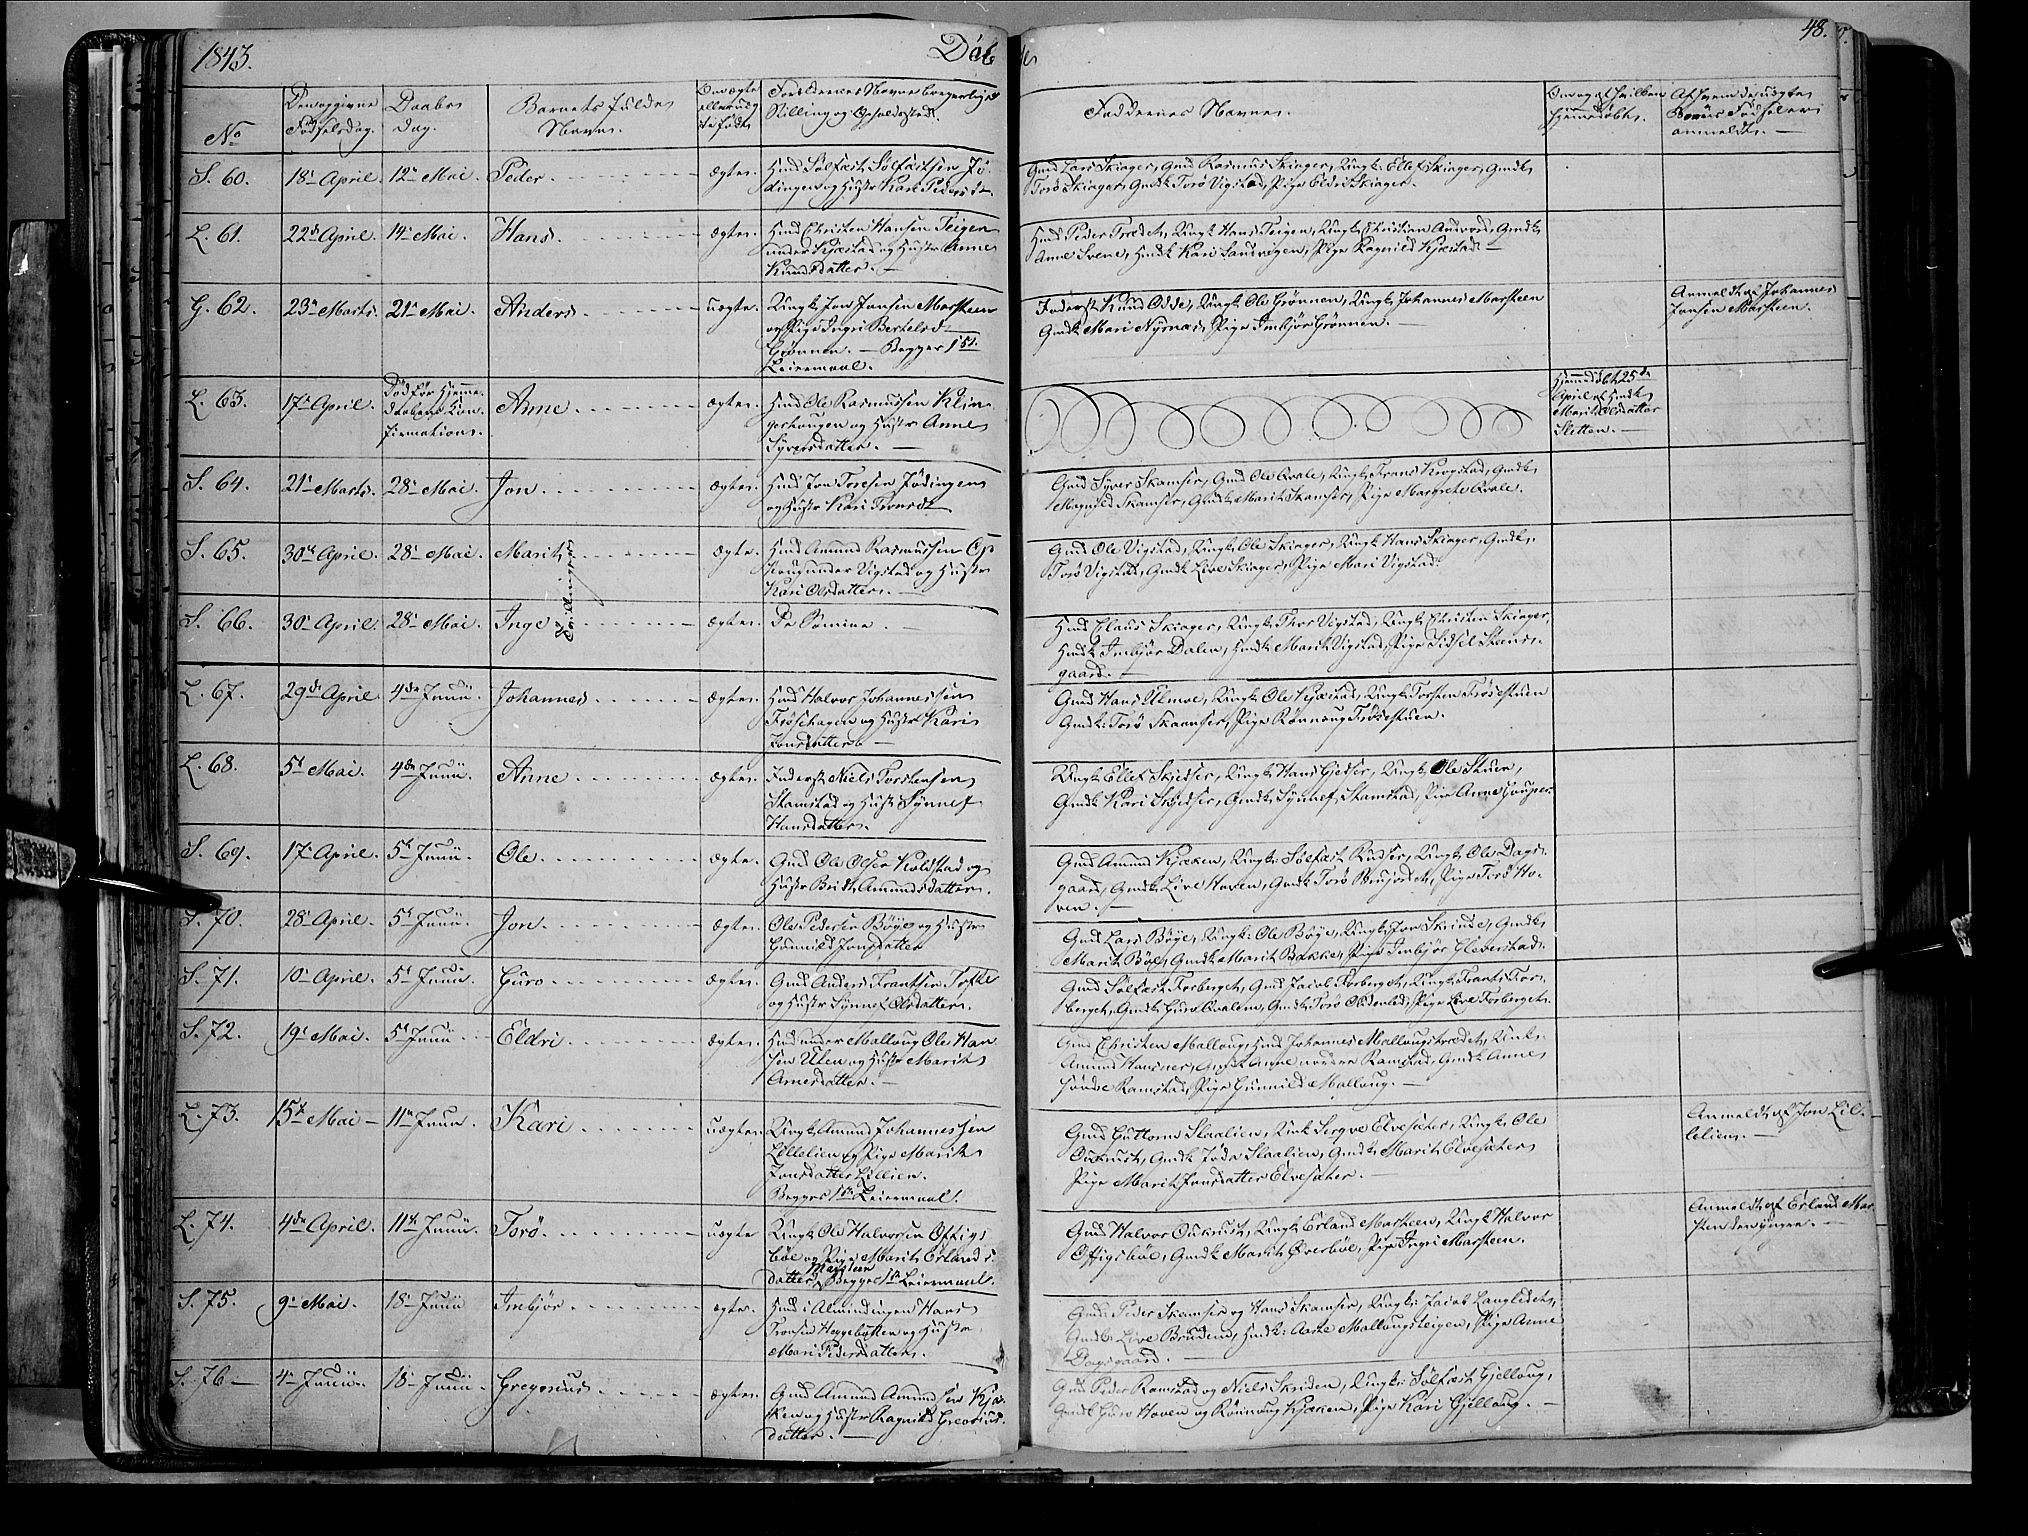 1843.
Døbte
48.
No
Den opgivne Fødselsdag.
Daabs Dag.
Barnets fulde Navn.
Om ægte eller uægte født
Forældrenes Navne borgerlige Stilling og Opholdssted.
Faddernes Navne.
Om og af hvilken hjemmedøbt.
Af hvem de uægte Børns Fødsel er anmeldt. —
S. 60. 18de April. 12te Mai. Peder ægte.
Gmd Lars Skiager, Gmd Rasmus Skiager, Ungk: Ellef Skiager, Gmdk
Torø Skiager, Gmdk Torø Vigstad, Pige Eldri Skiager.
L. 61. 22de April. 14de Mai. Hans ægte. Hmd Christen Hansen Teigen
under Kjæstad og Hustr Anne
Knudsdatter. —
Hmd Peder Trædet, Ungk Hans Teigen, Ungk Christian Andvord, Gmdk
Anne Sveine, Hmdk Kari Sandvigen, Pige Ragnild Kjæstad. —
G. 62. 23de Marts. 21de Mai. Anders uægte Ungk Jon Jonsen Marsteen
og Pige Ingri Bertelsd.
Grønnen. — Begges 1ste
Leiermaal.
Inderst Knud Odde, Ungk Ole Grønnen, Ungk Johannes Marsteen
Gmdk Mari Nyrnæs, Pige Imbjør Grønnen. —
Anmeldt af Johannes
Jonsen Marsteen.
L. 63. 17de April. Død før Hjemme-
daabens Con-
firmation. Anne ægte. Hmd Ole Rasmussen Klin-
gerhaugen og Hustr Anne
Syversdatter. —
Hjemmedøbt 25de
April af Hmdk
Marit Olsdatter
Sletten. —
S. 64. 21de Marts. 28de Mai. Jon ægte. Hmd Jon Toresen Jødingen
og Hustr Kari Tronsdt.
Gmd Syver Skamser, Gmd Ole Qvale, Ungk Frans Krogstad, Gmdk
Magnild Skamser, Gmdk Marit Skamser, Pige Margrete Qvale.
S. 65. 30te April. 28de Mai. Marit ægte. Hmd Amund Rasmussen
under Vigstad og Hustr
Kari Olsdatter. —
Tvillinger
Gmd Ole Vigstad, Ungk Ole Skiager, Ungk Hans Skiager, Gmdk
Torø Vigstad, Gmdk Live Skiager, Pige Mari Vigstad.
S. 66. 30te April. 28de Mai. Inge ægte. De Samme.
Hmd Claus Skiager, Ungk Thor Vigstad, Ungk Christen Skiager,
Hmdk Imbjør Dalen, Hmdk Marit Vigstad, Pige Sidsel Steens-
gaard. —
L. 67. 29de April 4de Junii. Johannes ægte. Hmd Halvor Johannessen
Frøsehagen og Hustr Kari
Jonsdatter —
Gmd Hans Ulmoe, Ungk Ole Kjæstad, Ungk Torsten Frøsestuen
Gmdk Torø Skamser, Pige Rønnoug Frøsestuen.
L. 68. 5te Mai. 4de Junii. Anne ægte. Inderst Niels Torstensen
Stamstad og Hustr Synnef
Hansdatter.
Ungk Ellef Skjedser, Ungk Hans Gjedser, Ungk Ole Stuen,
Gmdk Kari Skjedser, Gmdk Synnef Stamstad, Pige Anne
S. 69. 17de April. 5te Junii. Ole ægte. Gmd Ole Olsen Kolstad og
Hustr Brit Amundsdatter.
Gmd Amund Kjæken, Ungk: Sølfæst Rudser, Ungk Ole Dags-
gaard, Gmdk Live Hoven, Gmdk Torø Bersjordet, Pige Torø Ho-
ven. —
S. 70. 28de April. 5te Junii. Jon ægte. Ole Pedersen Bøye og Hustr
Gunnild Jonsdatter
Gmd Lars Bøye, Ungk: Ole Bøye, Ungk Jon Skrinde, Gmdk
Marit Bøe, Gmdk Marit Bakke, Pige Imbjør Cleverstad.
S. 71. 10de April. 5te Junii. Guro ægte. Gmd Anders Frantsen Tofte
og Hustr Synnef Olsdatter.
Gmd Sølfæst Forberget, Gmd Jacob Forberget, Ungk Frants For-
berget, Gmdk Guro Qvalen, Gmdk Torø Oldenled, Pige Live Forberget.
S. 72. 19de Mai. 5te Junii. Eldri ægte. Hmd under Malloug Ole Han-
sen Ulen og Hustr Marit
Arnesdatter. —
Gmd Christen Malloug, Hmd Johannes Mallougstrædet, Ungk
Amund Hausner, Gmdk Anne nordre Ramstad, Gmdk Anne
søndre Ramstad, Pige Gunnild Malloug. —
L. 73. 15de Mai — 11te Junii. Kari uægte Ungk Amund Johannessen
Lillelien og Pige Marit
Jonsdatter Lillelien.
Begges 1ste Leiermaal.
Gmd Guttorm Slaalien, Ungk Sergve Elvesæter, Ungk Ole
Oukrust, Gmdk Jøda Slaalien, Gmdk Marit Elvesæter
Pige Marit Jonsdatter Elvesæter.
Anmeldt af Jon Lil-
lelien. —
L. 74. 4de April. 11te Junii. Torø uægte Ungk Ole Halvorsen Offigs-
bøe og Pige Marit Erlands-
datter Marsteen Begges 1ste Leiermaal.
Gmd Halvor Oukrust, Ungk Erland Marsteen, Ungk Halvor
Offigsbøe, Gmdk Marit Øverbøe, Pige Ingri Marsteen.
Anmeldt af Erland Mar-
steen den yngre. —
S. 75. 9de Mai. 18de Junii Imbjør ægte. Hmd i Almindingen Hans
Tronsen Heggebotten og Hustr
Mari Pedersdatter.
Gmd: Peder Skamser og Hans Skamser, Ungk: Jacob Langledet,
Gmdk: Live Bruden, Hmdk: Aaste Mallougsteigen, Pige Anne
Dagsgaard. —
S. 76 — 4de Junii. 18de Junii. Gregorius ægte. Gmd Amund Amundsen Kjæ-
ken og Hustr Ragnild Greorius-
datter. —
Gmd Peder Ramstad og Niels Skriden, Ungk: Sølfæst Gjelloug,
Gmdk Guro Hoven og Rønnoug Kjæken, Pige Kari Gjelloug. —